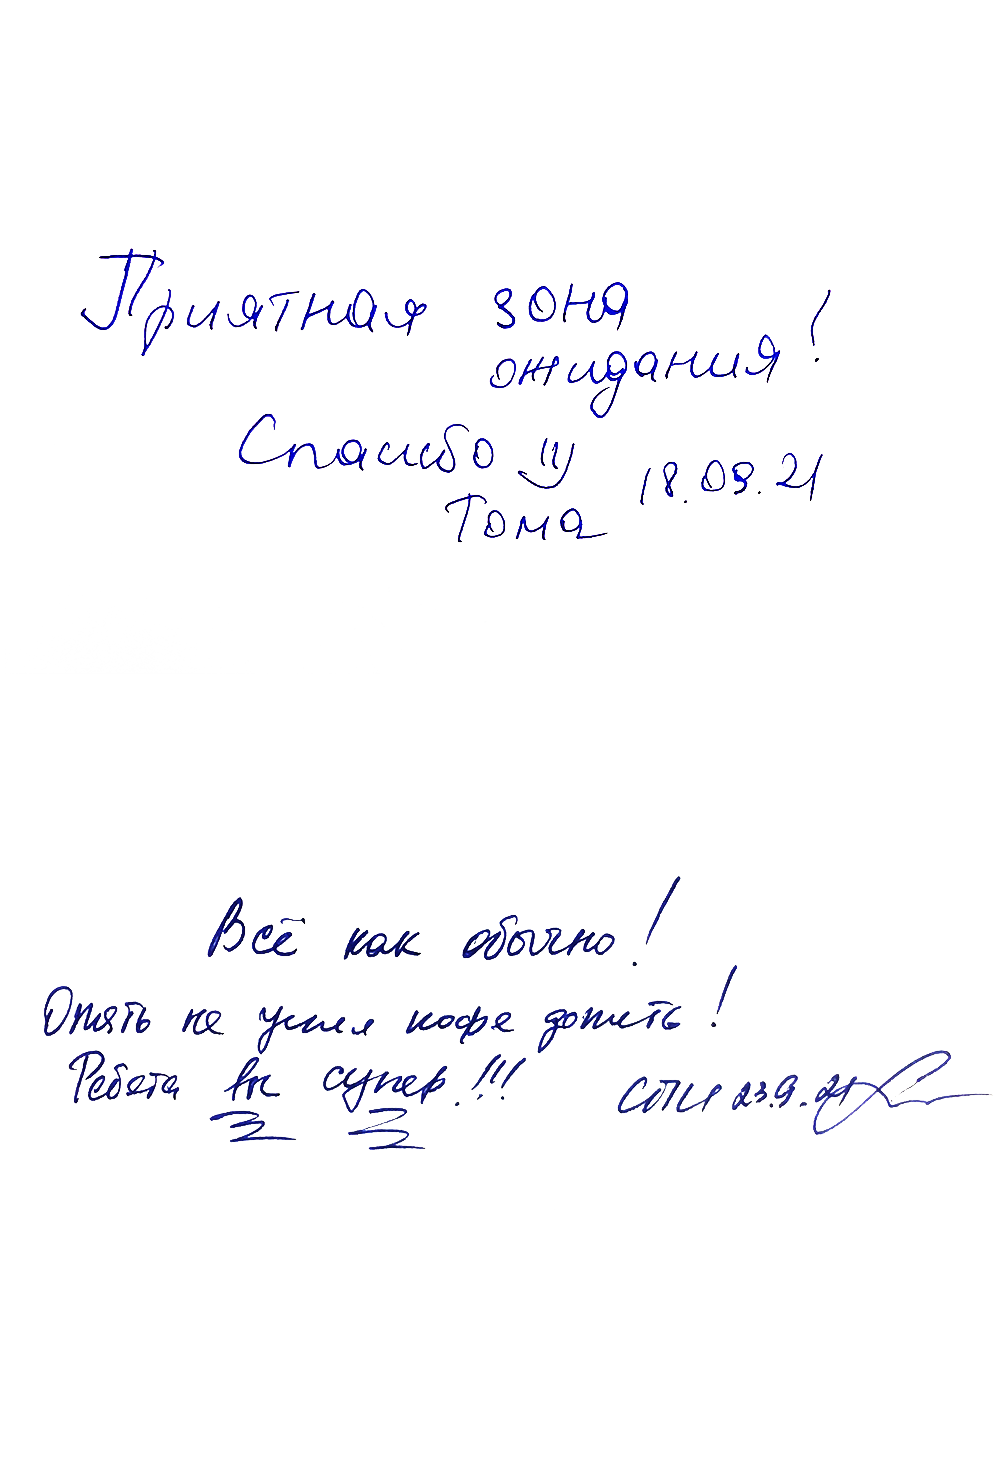 Приятная зона
ожидания!
Спасибо
Тома 18.09.21
Всё как обычно!
Опять не успел кофе допить!
Ребята вы супер!!!
23.9.21